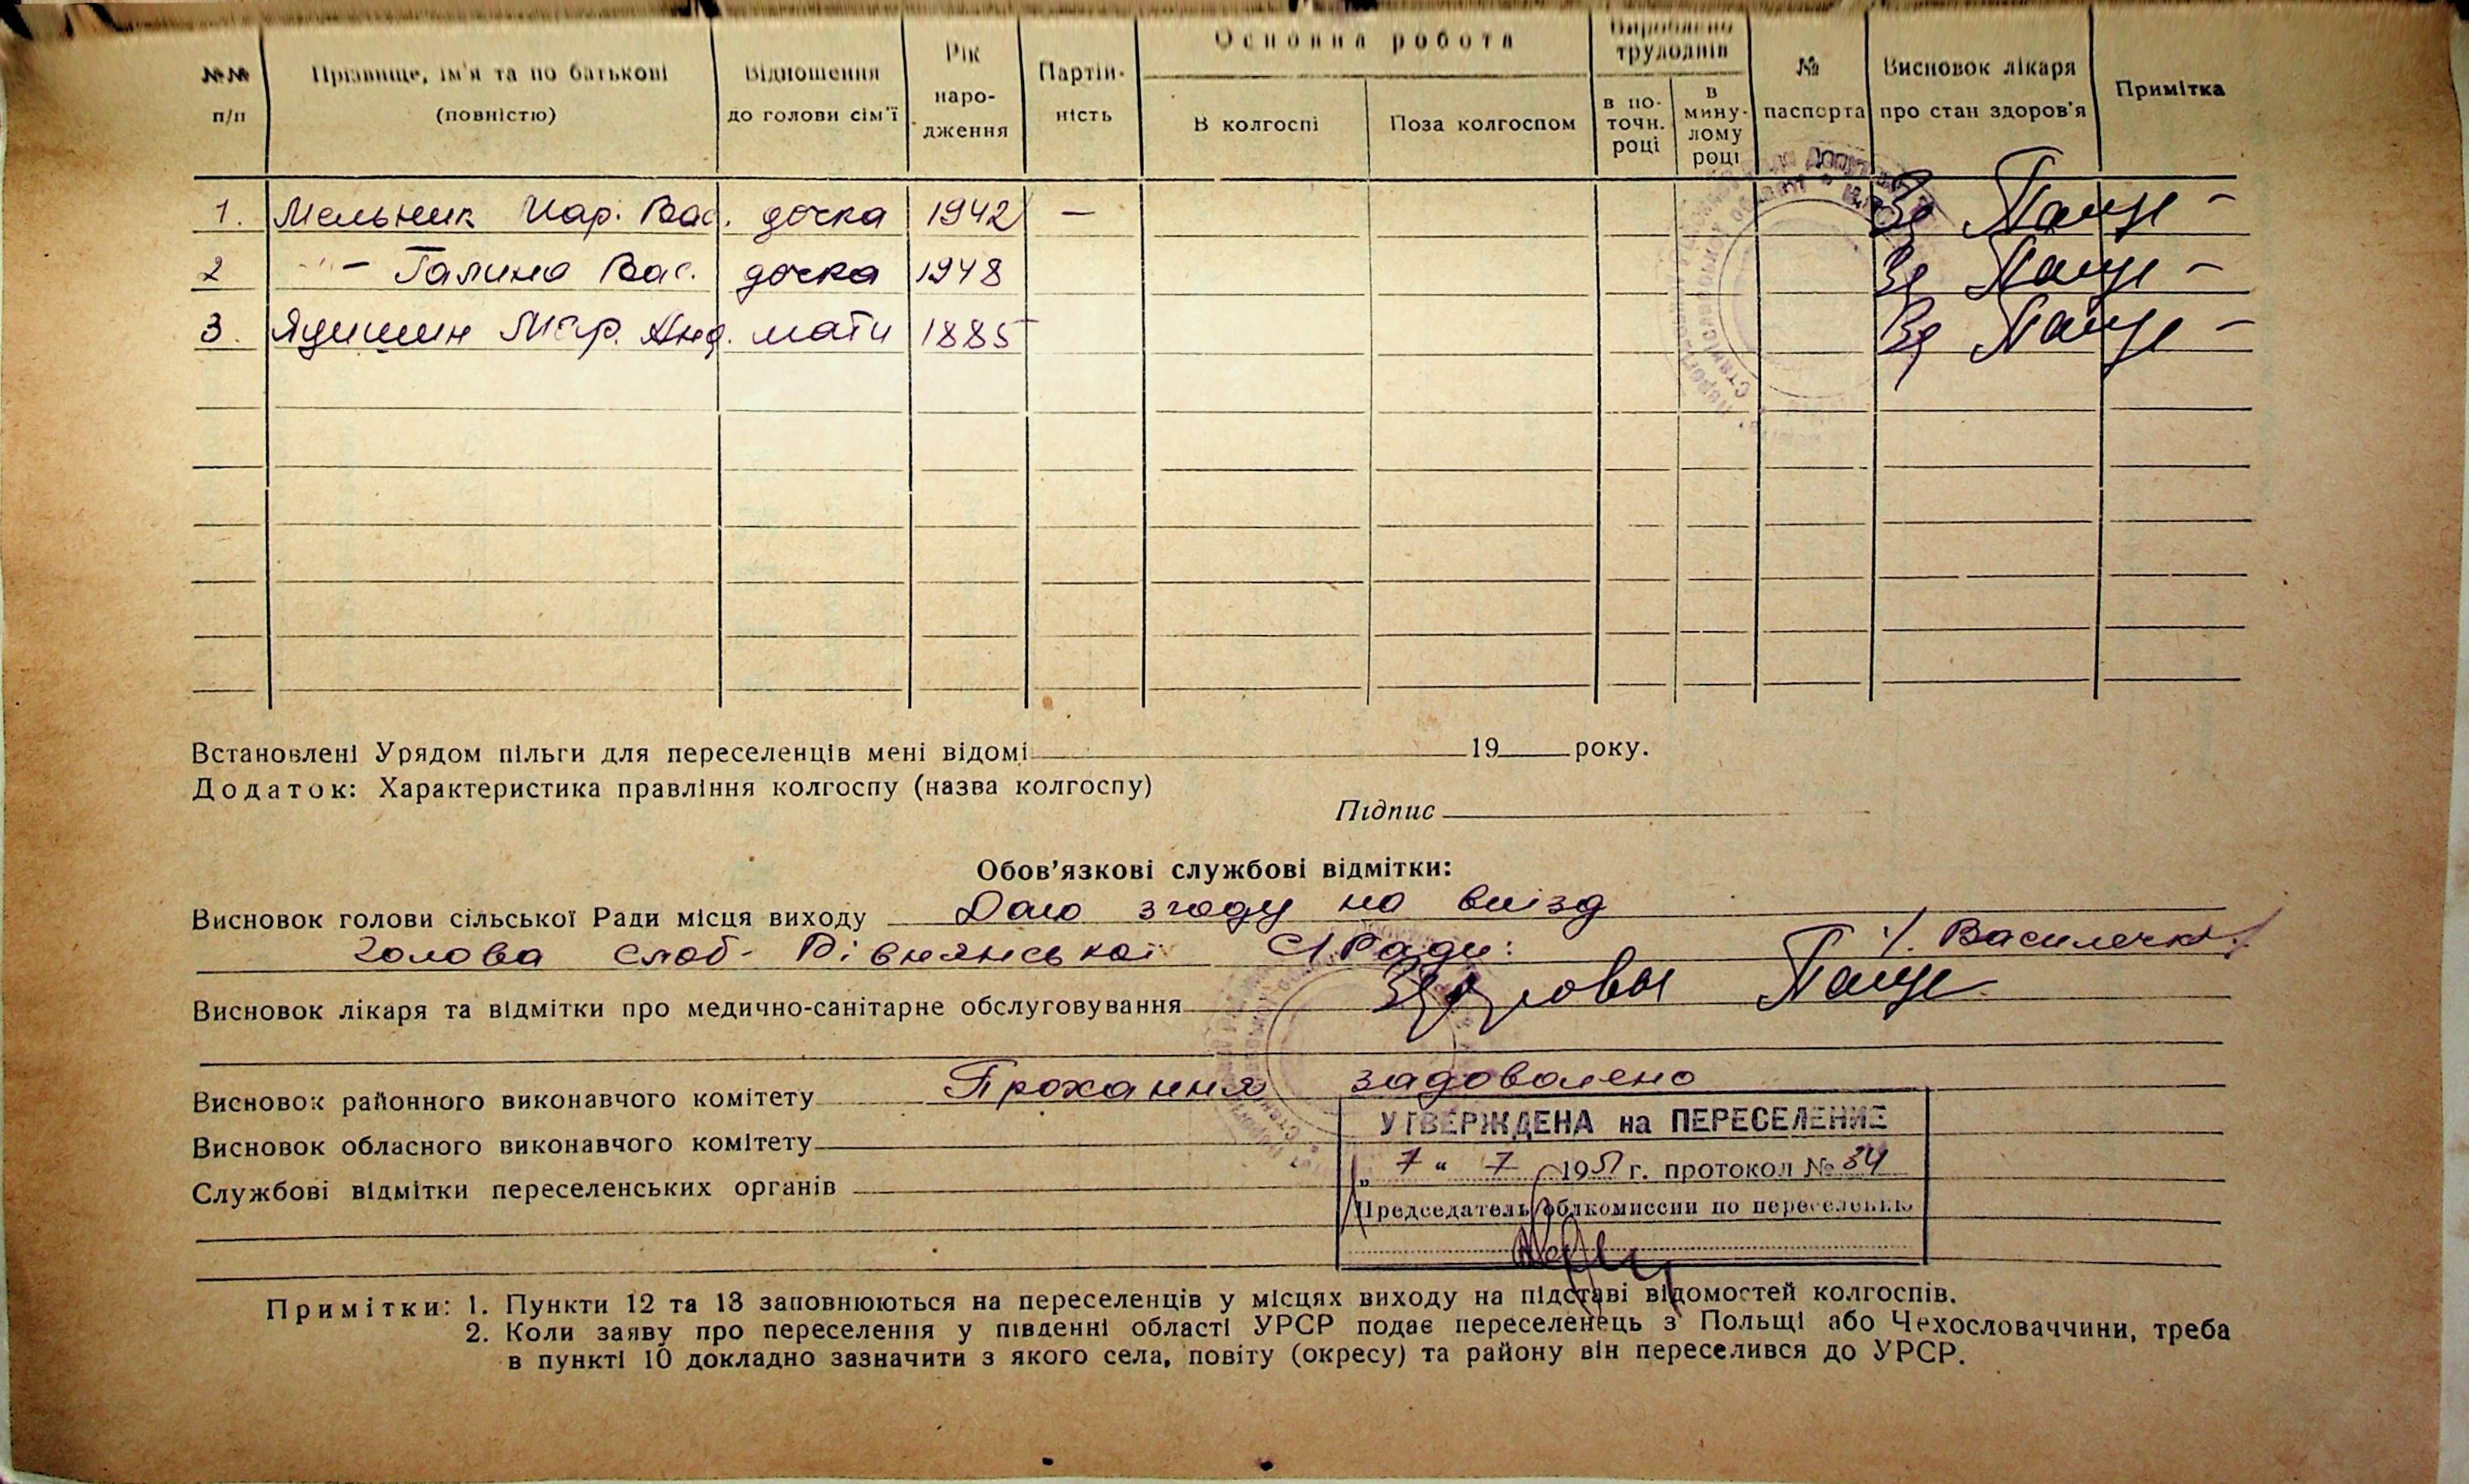 №№ п/п
Прізвище, ім'я та по батькові (повністю)
Відношення до голови сім'ї
Рік народження
Партійність
Основна робота
В колгоспі
Поза колгоспом
Вироблено трудоднів
в поточн. році
в минулому році
№ паспорта
Висновок лікаря про стан здоров'я
Примітка
1. Мельник Вас. дочка 1942 —
2 -"- Галина Вас. дочка 1948
3. Мар. Анд. мати 1885
Встановлені Урядом пільги для переселенців мені відомі 19 року.
Додаток: Характеристика правління колгоспу (назва колгоспу)
Підпис
Обов'язкові службові відмітки:
Висновок голови сільської Ради місця виходу Даю згоду на виїзд
Голова Слоб- Рівнянської С/Ради:
Висновок лікаря та відмітки про медично-санітарне обслуговування Здоровы
Висновок районного виконавчого комітету Прохання задоволено
Висновок обласного виконавчого комітету
УТВЕРЖДЕНА на ПЕРЕСЕЛЕНИЕ
„ 7 “ 7 1951 г. протокол № 34
Службові відмітки переселенських органів
Председатель облкомиссии по переселению
Примітки: 1. Пункти 12 та 13 заповнюються на переселенців у місцях виходу на підставі відомостей колгоспів.
2. Коли заяву про переселення у південні області УРСР подає переселенець з Польщі або Чехословаччини, треба
в пункті 10 докладно зазначити з якого села, повіту (окресу) та району він переселився до УРСР.